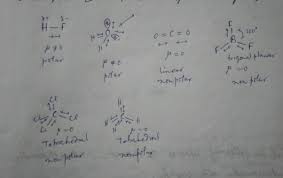 H — F
μ ≠ 0
polar
μ ≠ 0
polar
O = C = O
μ = 0
linear
nonpolar
F
120°
B
F
F
trigonal planar
μ = 0
nonpolar
Cl
C
Cl
Cl
Cl
μ = 0
Tetrahedral
nonpolar
H
C
H
H
μ = 0
Tetrahedral
nonpolar